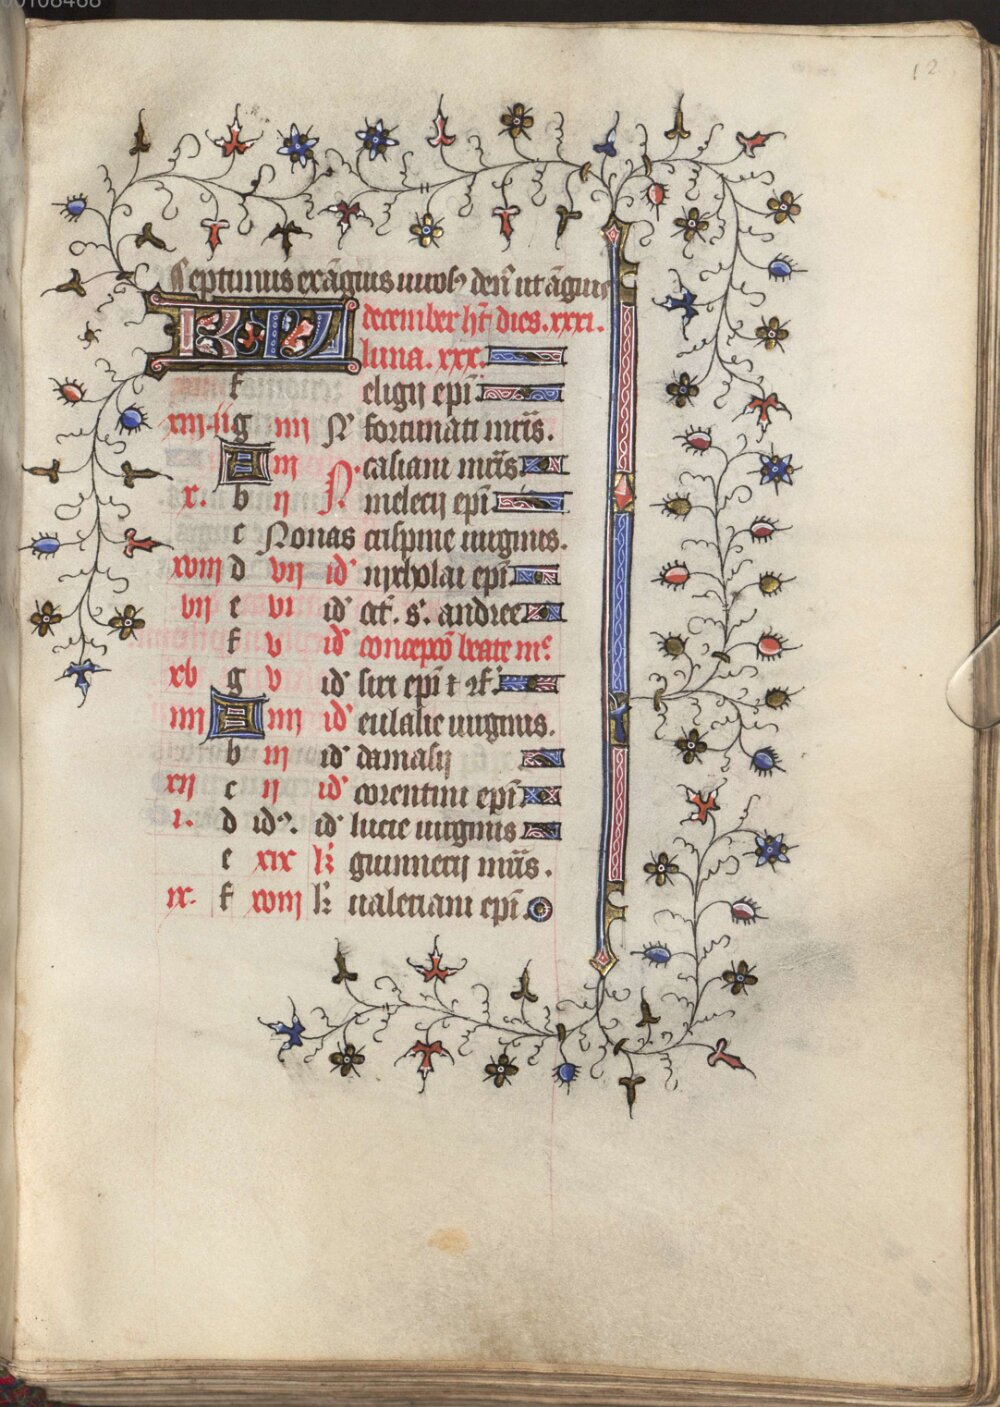 00108468
12
Septimus exāguis uiros⁹ denˢ ut āguis
KL december ht̄ dies .xxxi.
luna .xxx.
f eligij epi
xiii .ii g iiii N fortunati mr̄is.
A iii N. casiani mr̄is
x. b ii N. melecij epi
c Nonas crispine uirginis.
xviii d vii id' nicholai epi
vii e vi id' oct̄. s. andree
f v id' concepcō beate mᵉ
xv g v id' siri epi ⁊ 9f.
iiii A iiii id' eulalie uirginis.
b iii id' damasij
xii c ii id' corentini epi
i. d id⁹. id' lucie uirginis
e xix kl' guinnecij mr̄is.
ix. f xviii kl' ualeriani epi